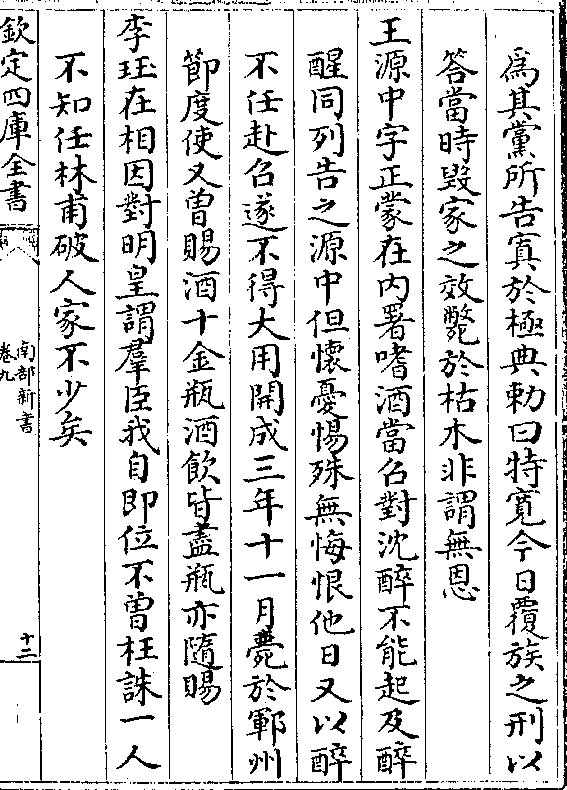 爲其黨所告寘於極典勅曰特寛今日覆族之刑以
答當時毀家之效斃於枯木非謂無恩
王源中字正蒙在内署嗜酒當召對沈醉不能起及醉
醒同列告之源中但懷憂惕殊無悔恨他日又以醉
不任赴召遂不得大用開成三年十一月薨於鄆州
節度使又曾賜酒十金瓶酒飲皆盡瓶亦隨賜
李珏在相因對明皇謂羣臣我自即位不曾枉誅一人
不知任林甫破人家不少矣
欽定四庫全書
南部新書
卷九
十二